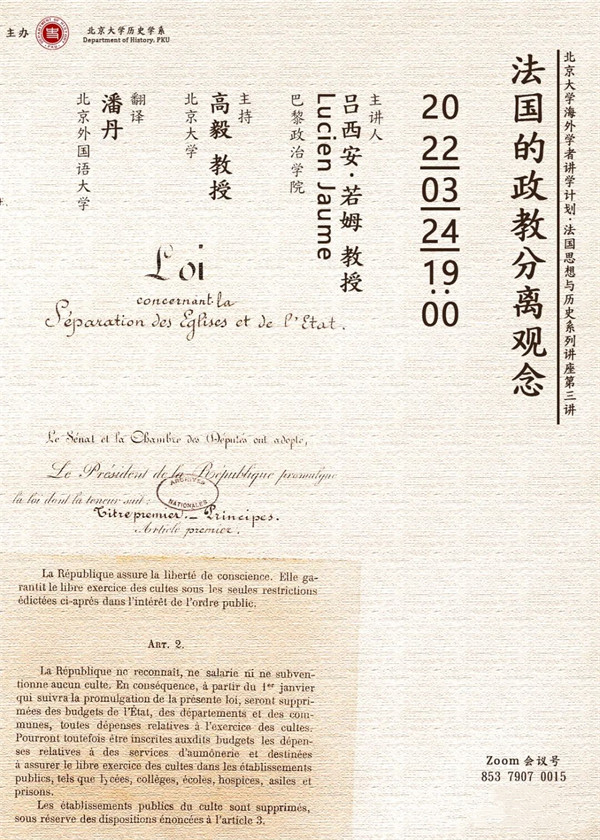 主办
北京大学历史学系
Department of History, PKU
北京大学海外学者讲学计划·法国思想与历史系列讲座第三讲
法国的政教分离观念
20
22
03
24
19:00
主讲人
吕西安·若姆 教授
Lucien Jaume
巴黎政治学院
主持
高毅 教授
北京大学
翻译
潘丹
北京外国语大学
Loi
concernant la
Séparation des Eglises et de l'Etat.
Le Sénat et la Chambre des Députés ont adopté,
Le Président de la République promulgue
la loi dont la teneur suit :
ARCHIVES
NATIONALES
Titre premier. _ Principes.
Article premier.
La République assure la liberté de conscience. Elle ga-
rantit le libre exercice des cultes sous les seules restrictions
édictées ci-après dans l'intérêt de l'ordre public.
ART. 2.
La République ne reconnaît, ne salarie ni ne subven-
tionne aucun culte. En conséquence, à partir du 1er janvier
qui suivra la promulgation de la présente loi, seront suppri-
mées des budgets de l'État, des départements et des com-
munes, toutes dépenses relatives à l'exercice des cultes.
Pourront toutefois être inscrites auxdits budgets les dépen-
ses relatives à des services d'aumônerie et destinées
à assurer le libre exercice des cultes dans les établissements
publics, tels que lycées, collèges, écoles, hospices, asiles et
prisons.
Les établissements publics du culte sont supprimés,
sous réserve des dispositions énoncées à l'article 3.
Zoom 会议号
853 7907 0015